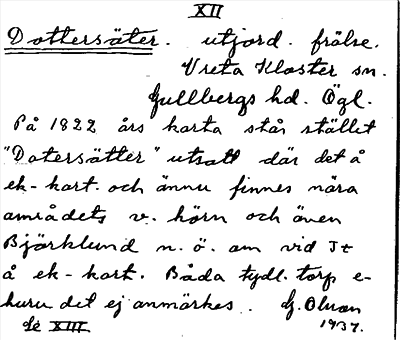 XII
Dottersäter. utjord. frälse.
Vreta Kloster sn.
Gullbergs hd. Ögl.
På 1822 års karta står stället
"Dotersätter" utsatt där det å
ek-kart. och ännu finnes nära
områdets v. hörn och även
Björklund n. ö. om vid It
å ek-kart. Båda tydl. torp e-
huru det ej anmärkes. G. Olson
Se XIII 1937.